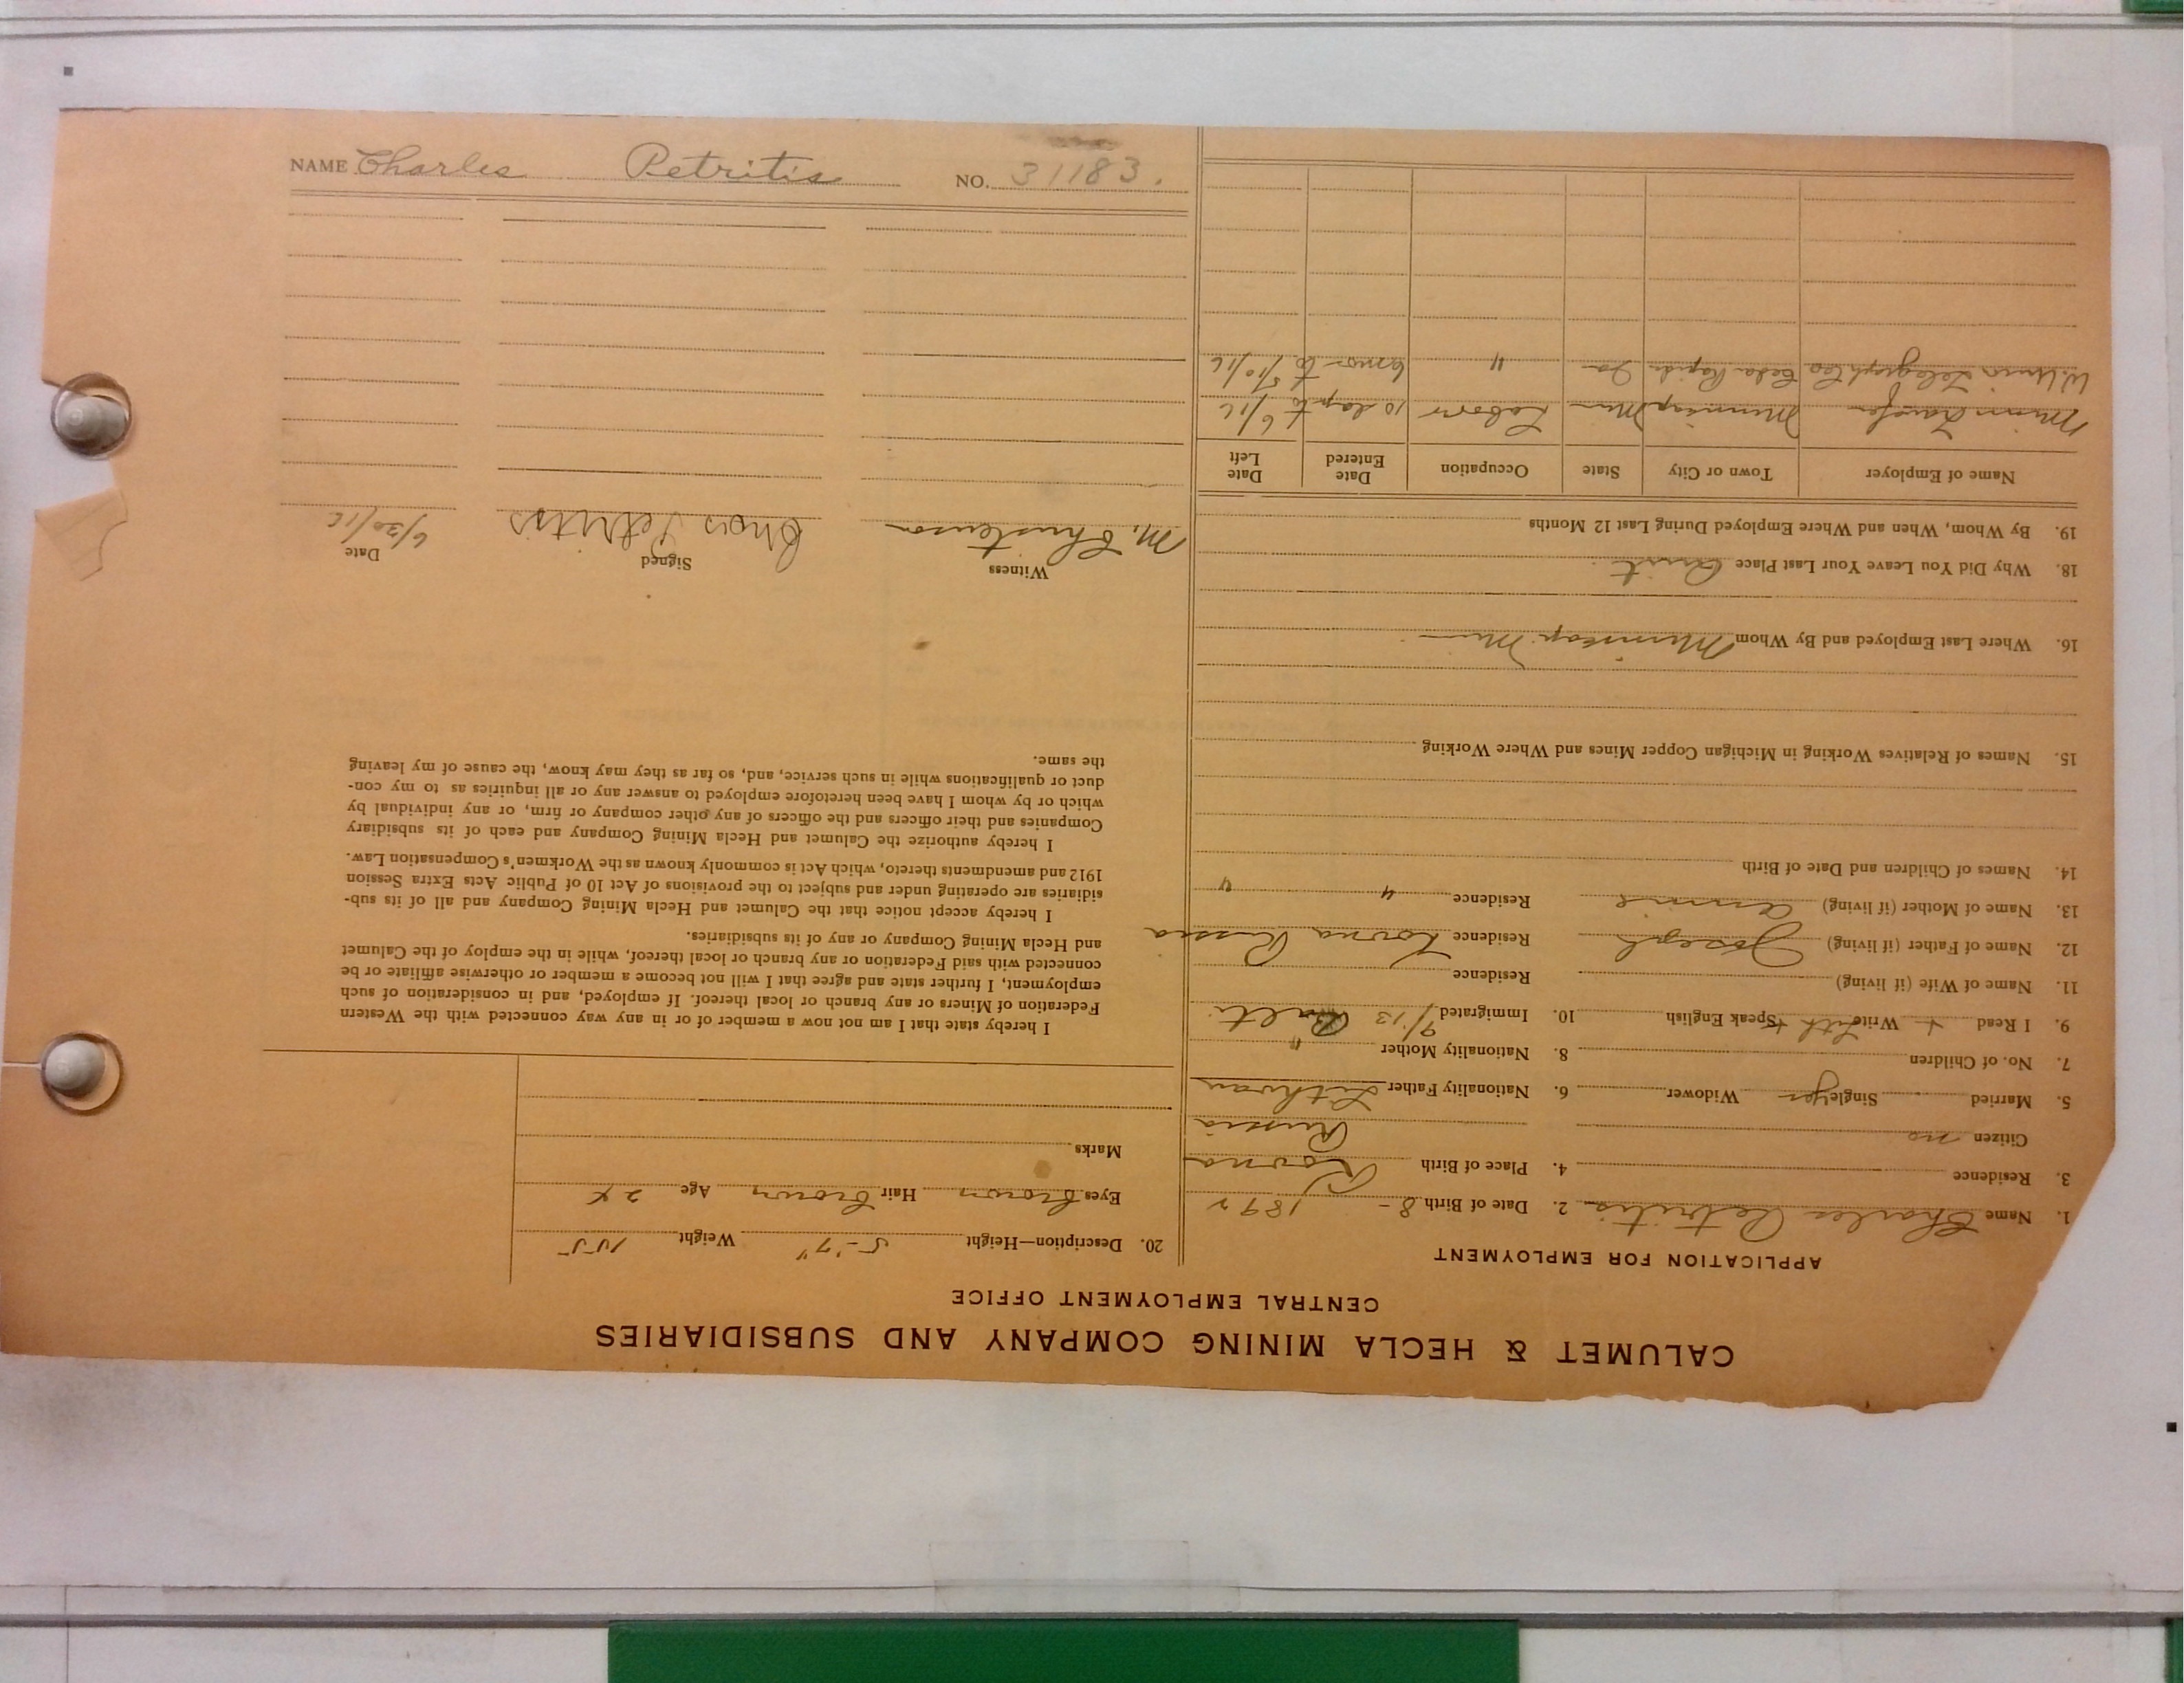 CALUMET & HECLA MINING COMPANY AND SUBSIDIARIES
CENTRAL EMPLOYMENT OFFICE
APPLICATION FOR EMPLOYMENT
1. Name Charles Petritis 2. Date of Birth 8 - 1892
3. Residence 4. Place of Birth Kovna
Citizen no Russia
5. Married Single yes Widower 6. Nationality Father Lithuan
7. No. of Children 8. Nationality Mother "
9. I Read + Write Lith + Speak English 10. Immigrated 9/13 Balti
11. Name of Wife (if living) Residence
12. Name of Father (if living) Joseph Residence Kovna Russia
13. Name of Mother (if living) Annie Residence " "
14. Names of Children and Date of Birth
15. Names of Relatives Working in Michigan Copper Mines and Where Working
16. Where Last Employed and By Whom Minneap. Minn
18. Why Did You Leave Your Last Place Quit
19. By Whom, When and Where Employed During Last 12 Months
Name of Employer Town or City State Occupation Date Entered Date Left
Minn Transfer Minneap Minn Labor 10 days to 6/16
W. Union Telegraph Co Cedar Rapids Ia " 6 mos to 5/10/16
20. Description—Height 5-'7" Weight 155
Eyes brown Hair brown Age 24
Marks
I hereby state that I am not now a member of or in any way connected with the Western
Federation of Miners or any branch or local thereof. If employed, and in consideration of such
employment, I further state and agree that I will not become a member or otherwise affiliate or be
connected with said Federation or any branch or local thereof, while in the employ of the Calumet
and Hecla Mining Company or any of its subsidiaries.
I hereby accept notice that the Calumet and Hecla Mining Company and all of its sub-
sidiaries are operating under and subject to the provisions of Act 10 of Public Acts Extra Session
1912 and amendments thereto, which Act is commonly known as the Workmen's Compensation Law.
I hereby authorize the Calumet and Hecla Mining Company and each of its subsidiary
Companies and their officers and the officers of any other company or firm, or any individual by
which or by whom I have been heretofore employed to answer any or all inquiries as to my con-
duct or qualifications while in such service, and, so far as they may know, the cause of my leaving
the same.
Witness Signed Date
M. Christenson Chas Petritis 6/30/16
NAME Charles Petritis NO. 31183.